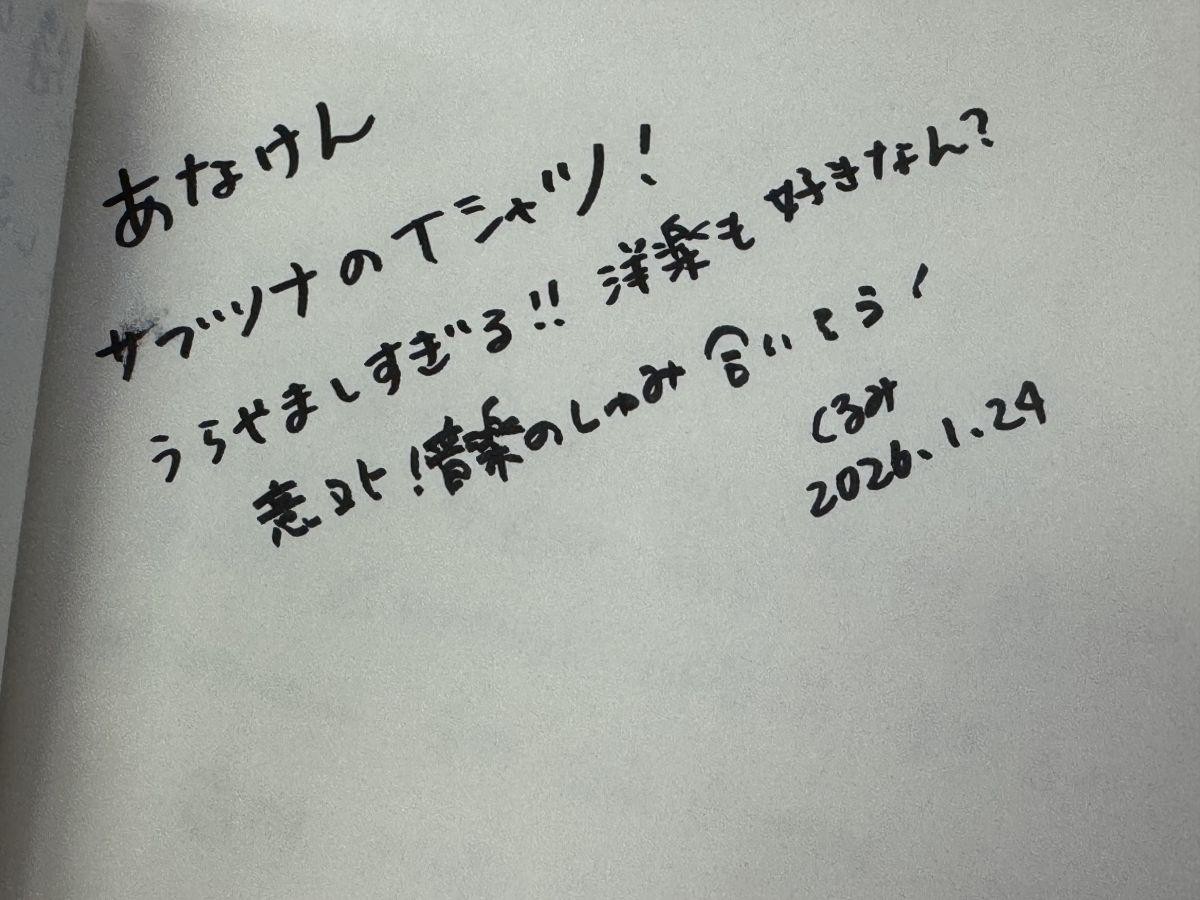 あなけん
サブツナのTシャツ!
うらやましすぎる!! 洋楽も好きなん?
意外!音楽のしゅみ合いそう!
くるみ
2026.1.24